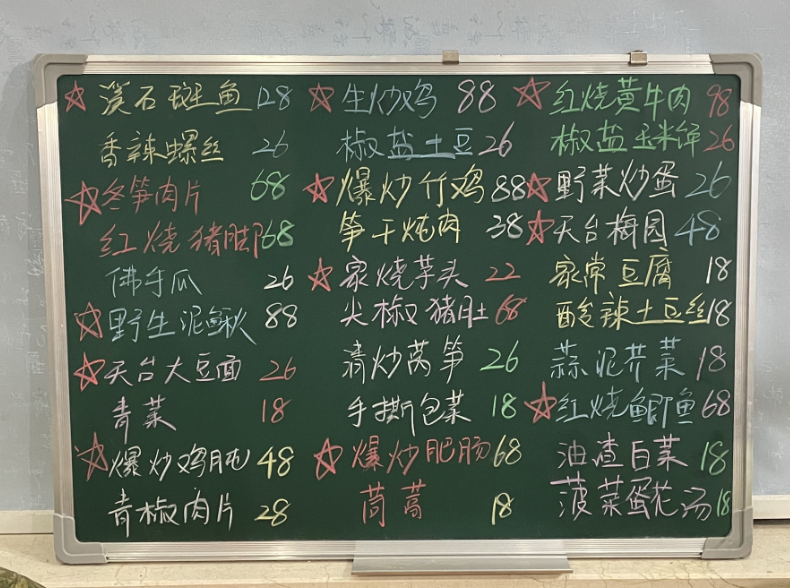 ☆ 溪石斑鱼 128
香辣螺丝 26
☆ 冬笋肉片 68
红烧猪脚 68
佛手瓜 26
☆ 野生泥鳅 88
☆ 天台大豆面 26
青菜 18
☆ 爆炒鸡肫 48
青椒肉片 28
☆ 生炒鸡 88
椒盐土豆 26
☆ 爆炒竹鸡 88
笋干炖肉 38
☆ 家烧芋头 22
尖椒猪肚 68
清炒莴笋 26
手撕包菜 18
☆ 爆炒肥肠 68
茼蒿 18
☆ 红烧黄牛肉 98
椒盐玉米饼 26
☆ 野菜炒蛋 26
☆ 天台梅园 48
家常豆腐 18
酸辣土豆丝 18
蒜泥芥菜 18
☆ 红烧鲫鱼 68
油渣白菜 18
菠菜蛋花汤 18